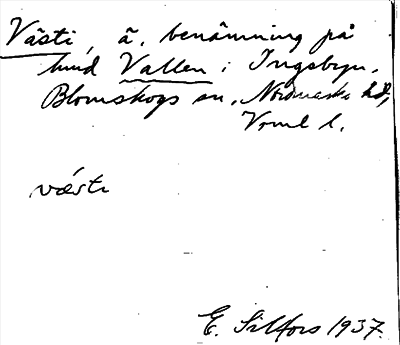 Västi, ä. benämning på
hmd Vallen i Ingsbyn,
Blomskogs sn, Nordmarks hd,
Vrml l.
västi
E. Sillfors 1937.